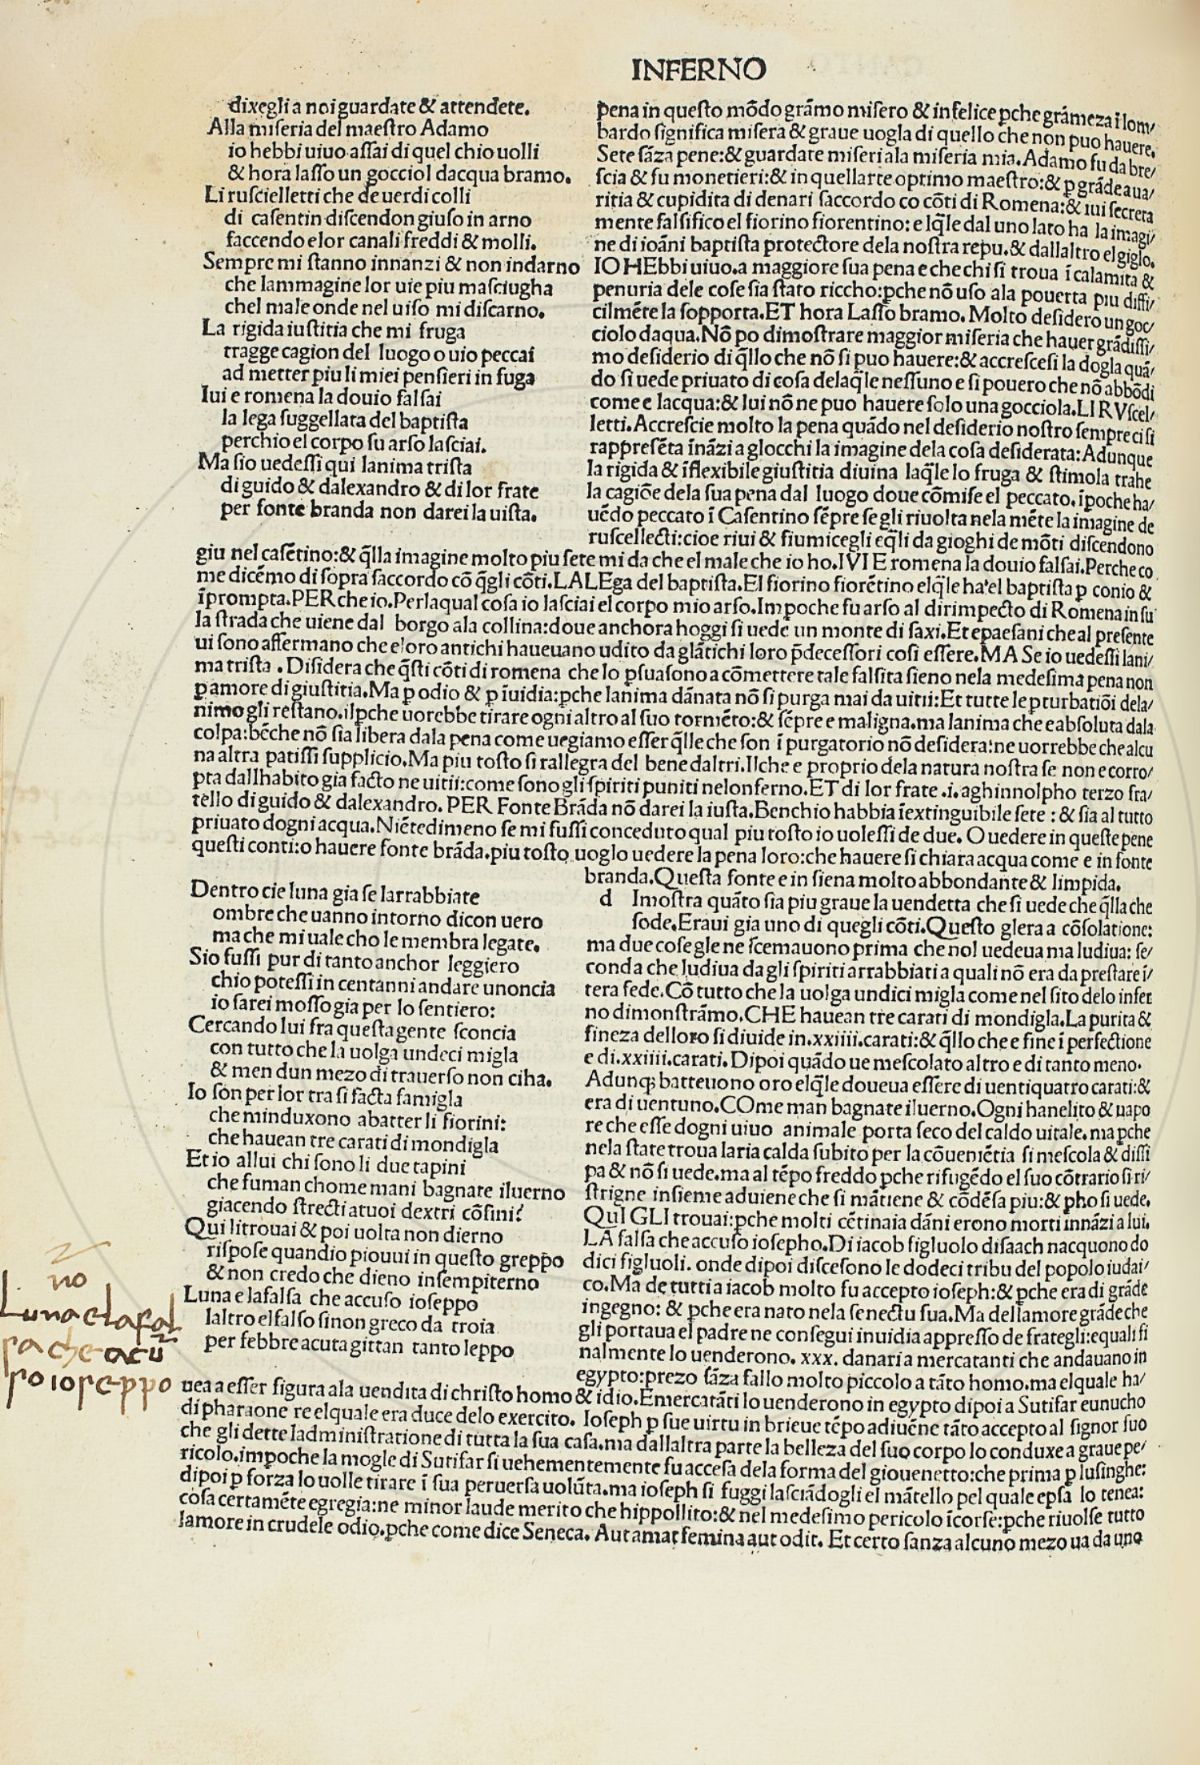 INFERNO
dixegli a noi guardate & attendete.
Alla miseria del maestro Adamo
io hebbi uiuo assai di quel chio uolli
& hora lasso un gocciol dacqua bramo.
Li ruscielletti che de uerdi colli
di casentin discendon giuso in arno
faccendo elor canali freddi & molli.
Sempre mi stanno innanzi & non indarno
che lammagine lor uie piu masciugha
chel male onde nel uiso mi discarno.
La rigida iustitia che mi fruga
tragge cagion del luogo o uio peccai
ad metter piu li miei pensieri in fuga
Iui e romena la douio falsai
la lega suggellata del baptista
perchio el corpo su arso lasciai.
Ma sio uedessi qui lanima trista
di guido & dalexandro & di lor frate
per fonte branda non darei la uista.
pena in questo mõdo grãmo misero & infelice pche grãmeza ĩ lom/
bardo significa misera & graue uogla di quello che non puo hauere.
Sete sãza pene:& guardate miseri ala miseria mia. Adamo fu da bre/
scia & fu monetieri:& in quellarte optimo maestro:& p grãde aua/
ritia & cupidita di denari saccordo co cõti di Romena:& iui secreta
mente falsifico el fiorino fiorentino: elq̃le dal uno lato ha la imagi/
ne di ioãni baptista protectore dela nostra repu. & dallaltro el giglo.
IO HEbbi uiuo.a maggiore sua pena e che chi si troua ĩ calamita &
penuria dele cose sia stato riccho:pche nõ uso ala pouerta piu diffi/
cilmẽte la sopporta.ET hora Lasso bramo. Molto desidero un goc/
ciolo daqua.Nõ po dimostrare maggior miseria che hauer grãdissi/
mo desiderio di q̃llo che nõ si puo hauere:& accrescesi la dogla quã/
do si uede priuato di cosa delaq̃le nessuno e si pouero che nõ abbõdi
come e lacqua:& lui nõ ne puo hauere solo una gocciola.LI RVscel/
letti. Accrescie molto la pena quãdo nel desiderio nostro sempre ci si
rappresẽta ĩnãzi a glocchi la imagine dela cosa desiderata: Adunque
la rigida & ĩflexibile giustitia diuina laq̃le lo fruga & stimola trahe
la cagiõe dela sua pena dal luogo doue cõmise el peccato. ĩpoche ha/
uẽdo peccato ĩ Casentino sẽpre se gli riuolta nela mẽte la imagine de
ruscellecti:cioe riui & fiumicegli eq̃li da gioghi de mõti discendono
giu nel casẽtino:& q̃lla imagine molto piu sete mi da che el male che io ho.IVI E romena la douio falsai.Perche co
me dicẽmo di sopra saccordo cõ q̃gli cõti. LALEga del baptista. El fiorino fiorẽtino elq̃le ha'el baptista p conio &
ĩprompta.PER che io. Perlaqual cosa io lasciai el corpo mio arso. Impoche fu arso al dirimpecto di Romena in su
la strada che uiene dal borgo ala collina:doue anchora hoggi si uede un monte di saxi. Et epaesani che al presente
ui sono affermano che eloro antichi haueuano udito da glãtichi loro p̃decessori cosi essere.MA Se io uedessi lani/
ma trista . Disidera che q̃sti cõti di romena che lo psuasono a cõmettere tale falsita sieno nela medesima pena non
p amore di giustitia. Ma p odio & p ĩuidia:pche lanima dãnata nõ si purga mai da uitii: Et tutte le pturbatiõi dela/
nimo gli restano.ilpche uorebbe tirare ogni altro al suo tormẽto:& sẽpre e maligna.ma lanima che e absoluta dala
colpa:bẽche nõ sia libera dala pena come uegiamo esser q̃lle che son ĩ purgatorio nõ desidera:ne uorrebbe che alcu
na altra patissi supplicio. Ma piu tosto si rallegra del bene daltri. Ilche e proprio dela natura nostra se non e corro/
pta dallhabito gia facto ne uitii:come sono gli spiriti puniti nelonferno. ET di lor frate .i. aghinnolpho terzo fra/
tello di guido & dalexandro. PER Fonte Brãda nõ darei la iusta. Benchio habbia ĩextinguibile sete : & sia al tutto
priuato dogni acqua. Niẽtedimeno se mi fussi conceduto qual piu tosto io uolessi de due. O uedere in queste pene
questi conti:o hauere fonte brãda.piu tosto uoglo uedere la pena loro:che hauere si chiara acqua come e in fonte
branda. Questa fonte e in siena molto abbondante & limpida.
Dentro cie luna gia se larrabbiate
ombre che uanno intorno dicon uero
ma che mi uale cho le membra legate.
Sio fussi pur di tanto anchor leggiero
chio potessi in centanni andare unoncia
io sarei mosso gia per lo sentiero:
Cercando lui fra questa gente sconcia
con tutto che la uolga undeci migla
& men dun mezo di trauerso non ciha.
Io son per lor tra si facta famigla
che minduxono abatter li fiorini:
che hauean tre carati di mondigla
Et io allui chi sono li due tapini
che fuman chome mani bagnate iluerno
giacendo strecti atuoi dextri cõfini?
Qui litrouai & poi uolta non dierno
rispose quandio piouui in questo greppo
& non credo che dieno insempiterno
Luna e lafalsa che accuso ioseppo
laltro el falso sinon greco da troia
per febbre acuta gittan tanto leppo
d Imostra quãto sia piu graue la uendetta che si uede che q̃lla che
sode. Eraui gia uno di quegli cõti. Questo glera a cõsolatione:
ma due cose gle ne scemauono prima che nol uedeua ma ludiua: se/
conda che ludiua dagli spiriti arrabbiati a quali nõ era da prestare ĩ/
tera fede. Cõ tutto che la uolga undici migla come nel sito delo infer
no dimonstrãmo. CHE hauean tre carati di mondigla. La purita &
fineza delloro si diuide in .xxiiii.carati:& q̃llo che e fine ĩ perfectione
e di .xxiiii.carati. Dipoi quãdo ue mescolato altro e di tanto meno.
Adunq; batteuono oro elq̃le doueua essere di uentiquatro carati:&
era di uentuno. COme man bagnate iluerno. Ogni hanelito & uapo
re che esse dogni uiuo animale porta seco del caldo uitale. ma pche
nela state troua laria calda subito per la cõueniẽtia si mescola & dissi
pa & nõ si uede. ma al tẽpo freddo pche rifugẽdo el suo cõtrario si ri/
strigne insieme aduiene che si mãtiene & cõdẽsa piu:& pho si uede.
QuI GLI trouai:pche molti cẽtinaia dãni erono morti innãzi a lui.
LA falsa che accuso iosepho. Di iacob figluolo disaach nacquono do
dici figluoli. onde dipoi discesono le dodeci tribu del popolo iudai/
co. Ma de tutti a iacob molto fu accepto ioseph:& pche era di grãde
ingegno: & pche era nato nela senectu sua. Ma dellamore grãde che
gli portaua el padre ne consegui inuidia appresso de frategli:equali fi
nalmente lo uenderono. xxx. danari a mercatanti che andauano in
egypto:prezo sãza fallo molto piccolo a tãto homo. ma elquale ha/
uea a esser figura ala uendita di christo homo & idio. Emercatãti lo uenderono in egypto dipoi a Sutifar eunucho
di pharaone re elquale era duce delo exercito. Ioseph p sue uirtu in brieue tẽpo adiuẽne tãto accepto al signor suo
che gli dette ladministratione di tutta la sua casa. ma dallaltra parte la belleza del suo corpo lo conduxe a graue pe/
ricolo.impoche la mogle di Sutifar si uehementemente fu accesa dela forma del giouenetto:che prima p lusinghe:
dipoi p forza lo uolle tirare ĩ sua peruersa uolũta. ma ioseph si fuggi lasciãdogli el mãtello pel quale epsa lo tenea:
cosa certamẽte egregia:ne minor laude merito che hippollito:& nel medesimo pericolo ĩcorse:pche riuolse tutto
lamore in crudele odio.pche come dice Seneca. Aut amat femina aut odit. Et certo sanza alcuno mezo ua da uno
no
Luna e la fal
sa che accu
so ioseppo